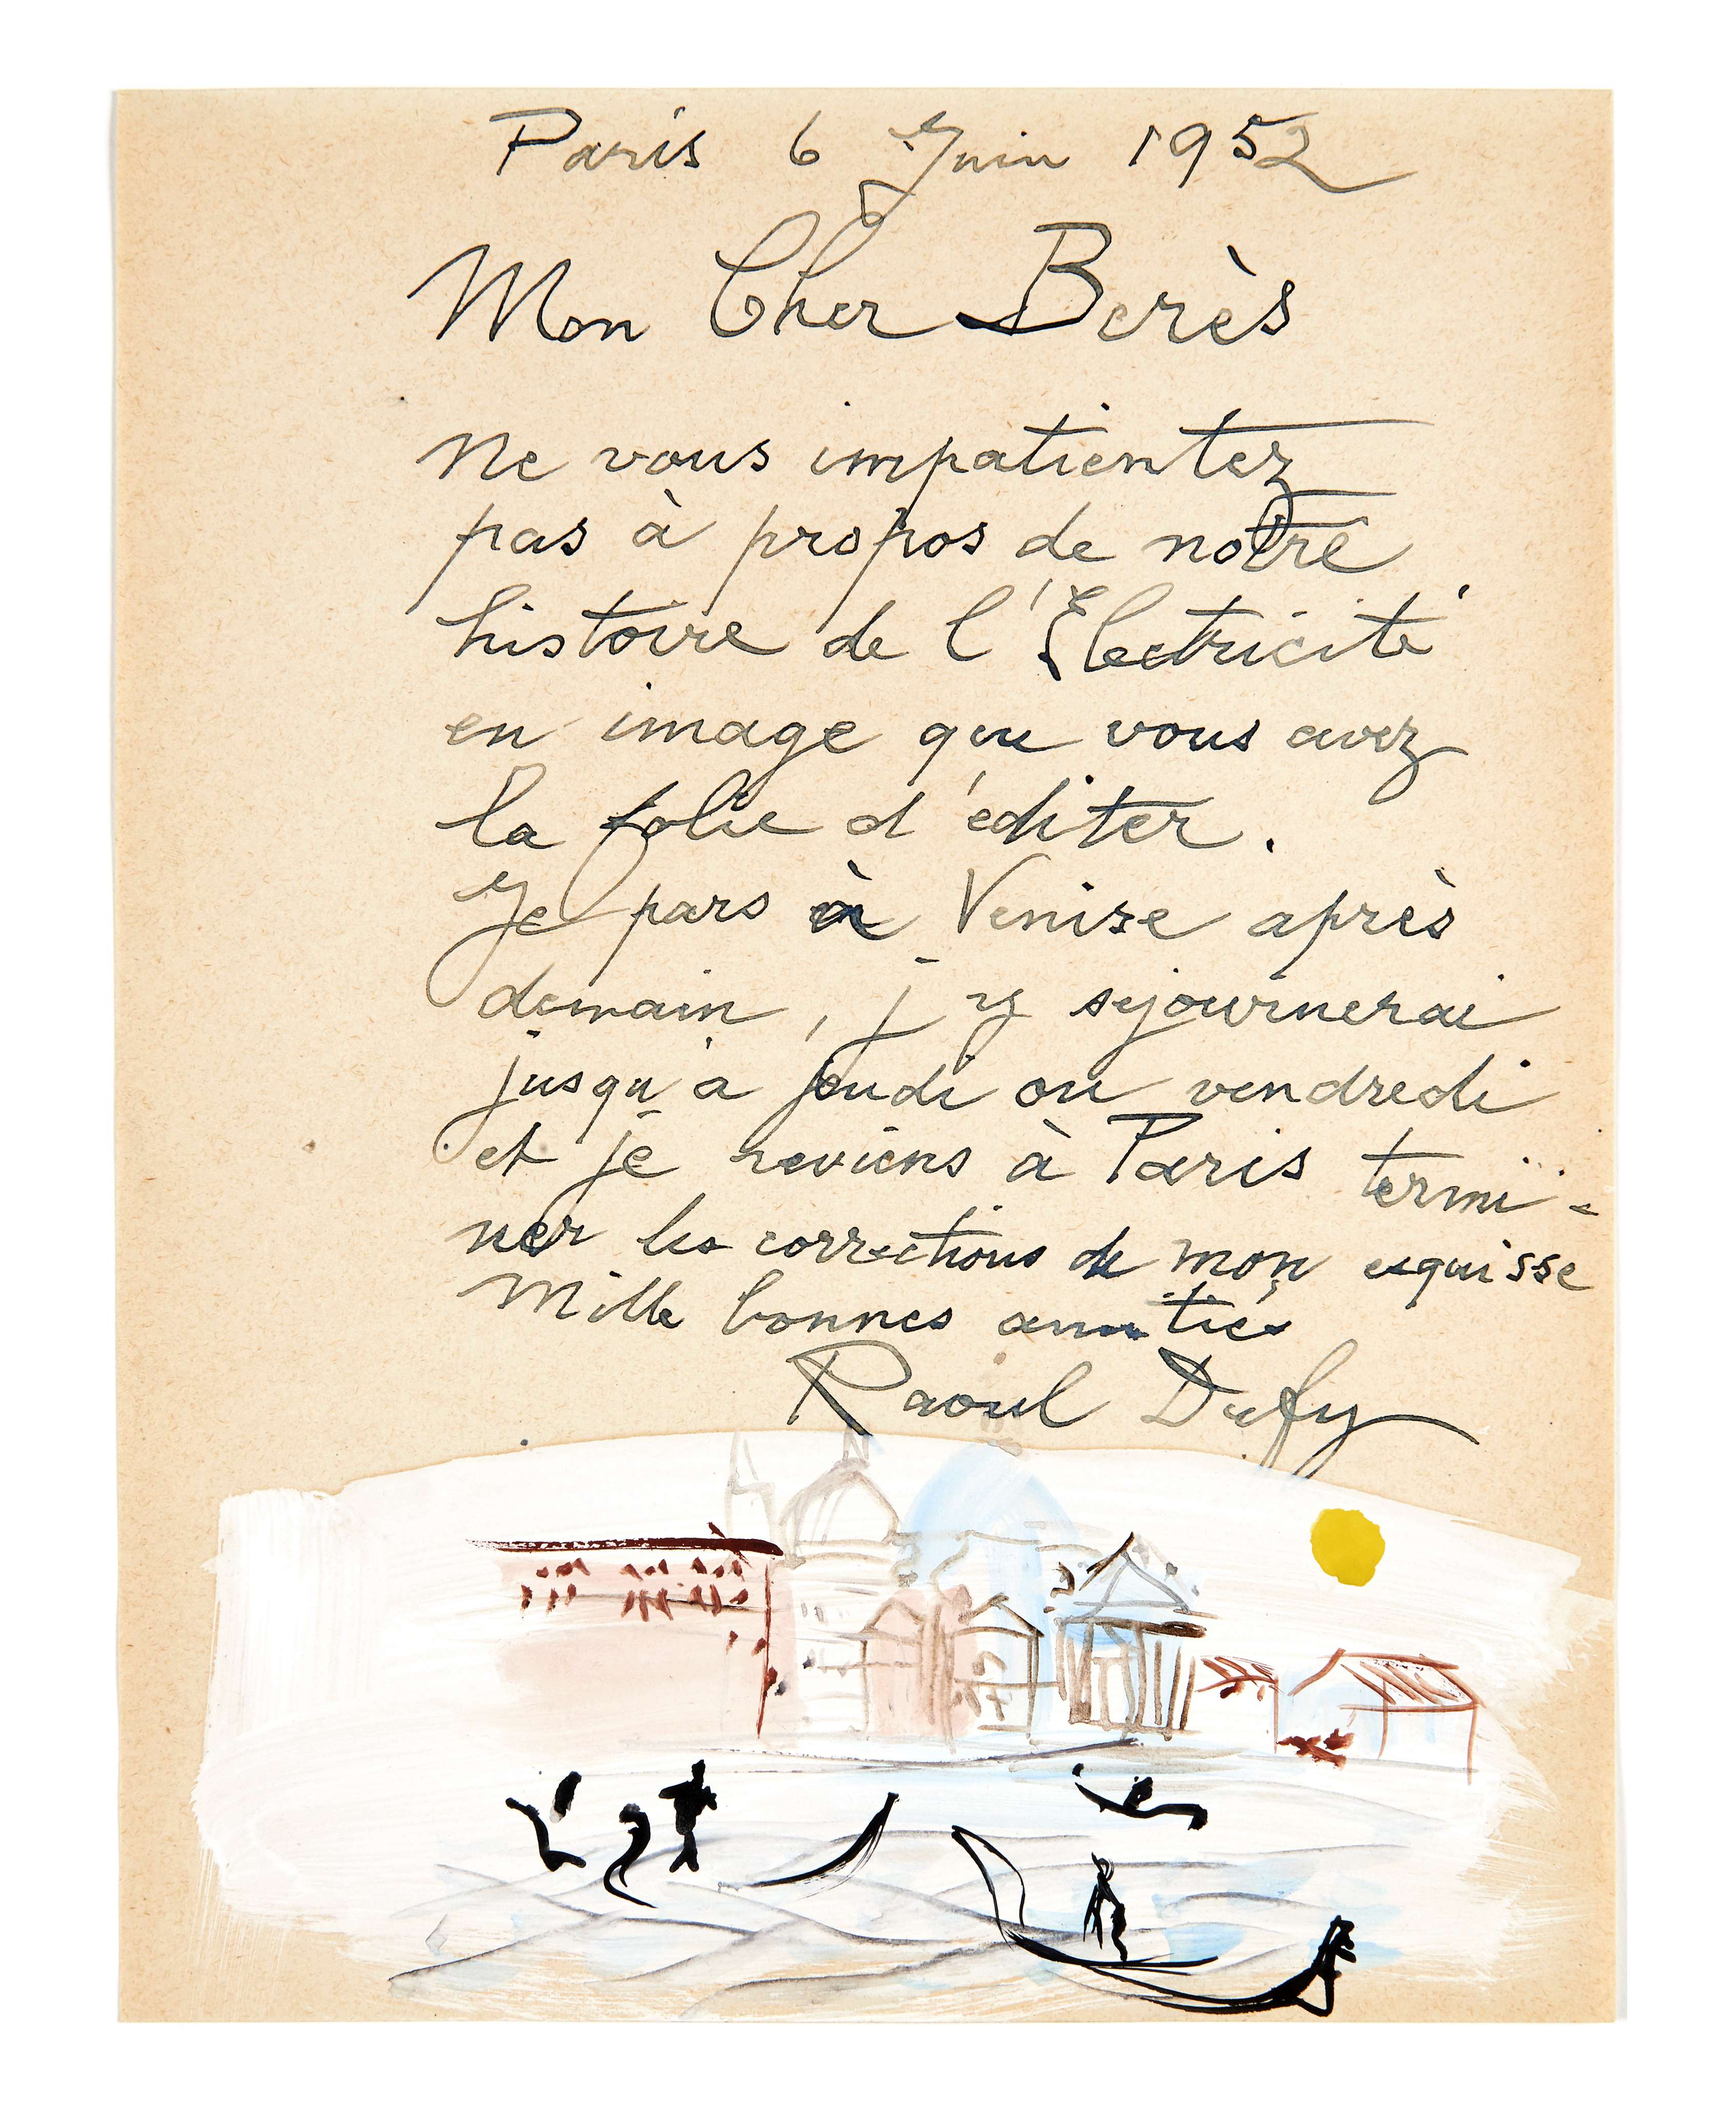 Paris 6 Juin 1952
Mon Cher Berès
Ne vous impatientez
pas à propos de notre
histoire de l'Électricité
en image que vous avez
la folie d'éditer.
Je pars à Venise après
demain, j'y sejournerai
jusqu'à jeudi ou vendredi
et je reviens à Paris termi-
ner les corrections de mon esquisse
Mille bonnes amitiés
Raoul Dufy